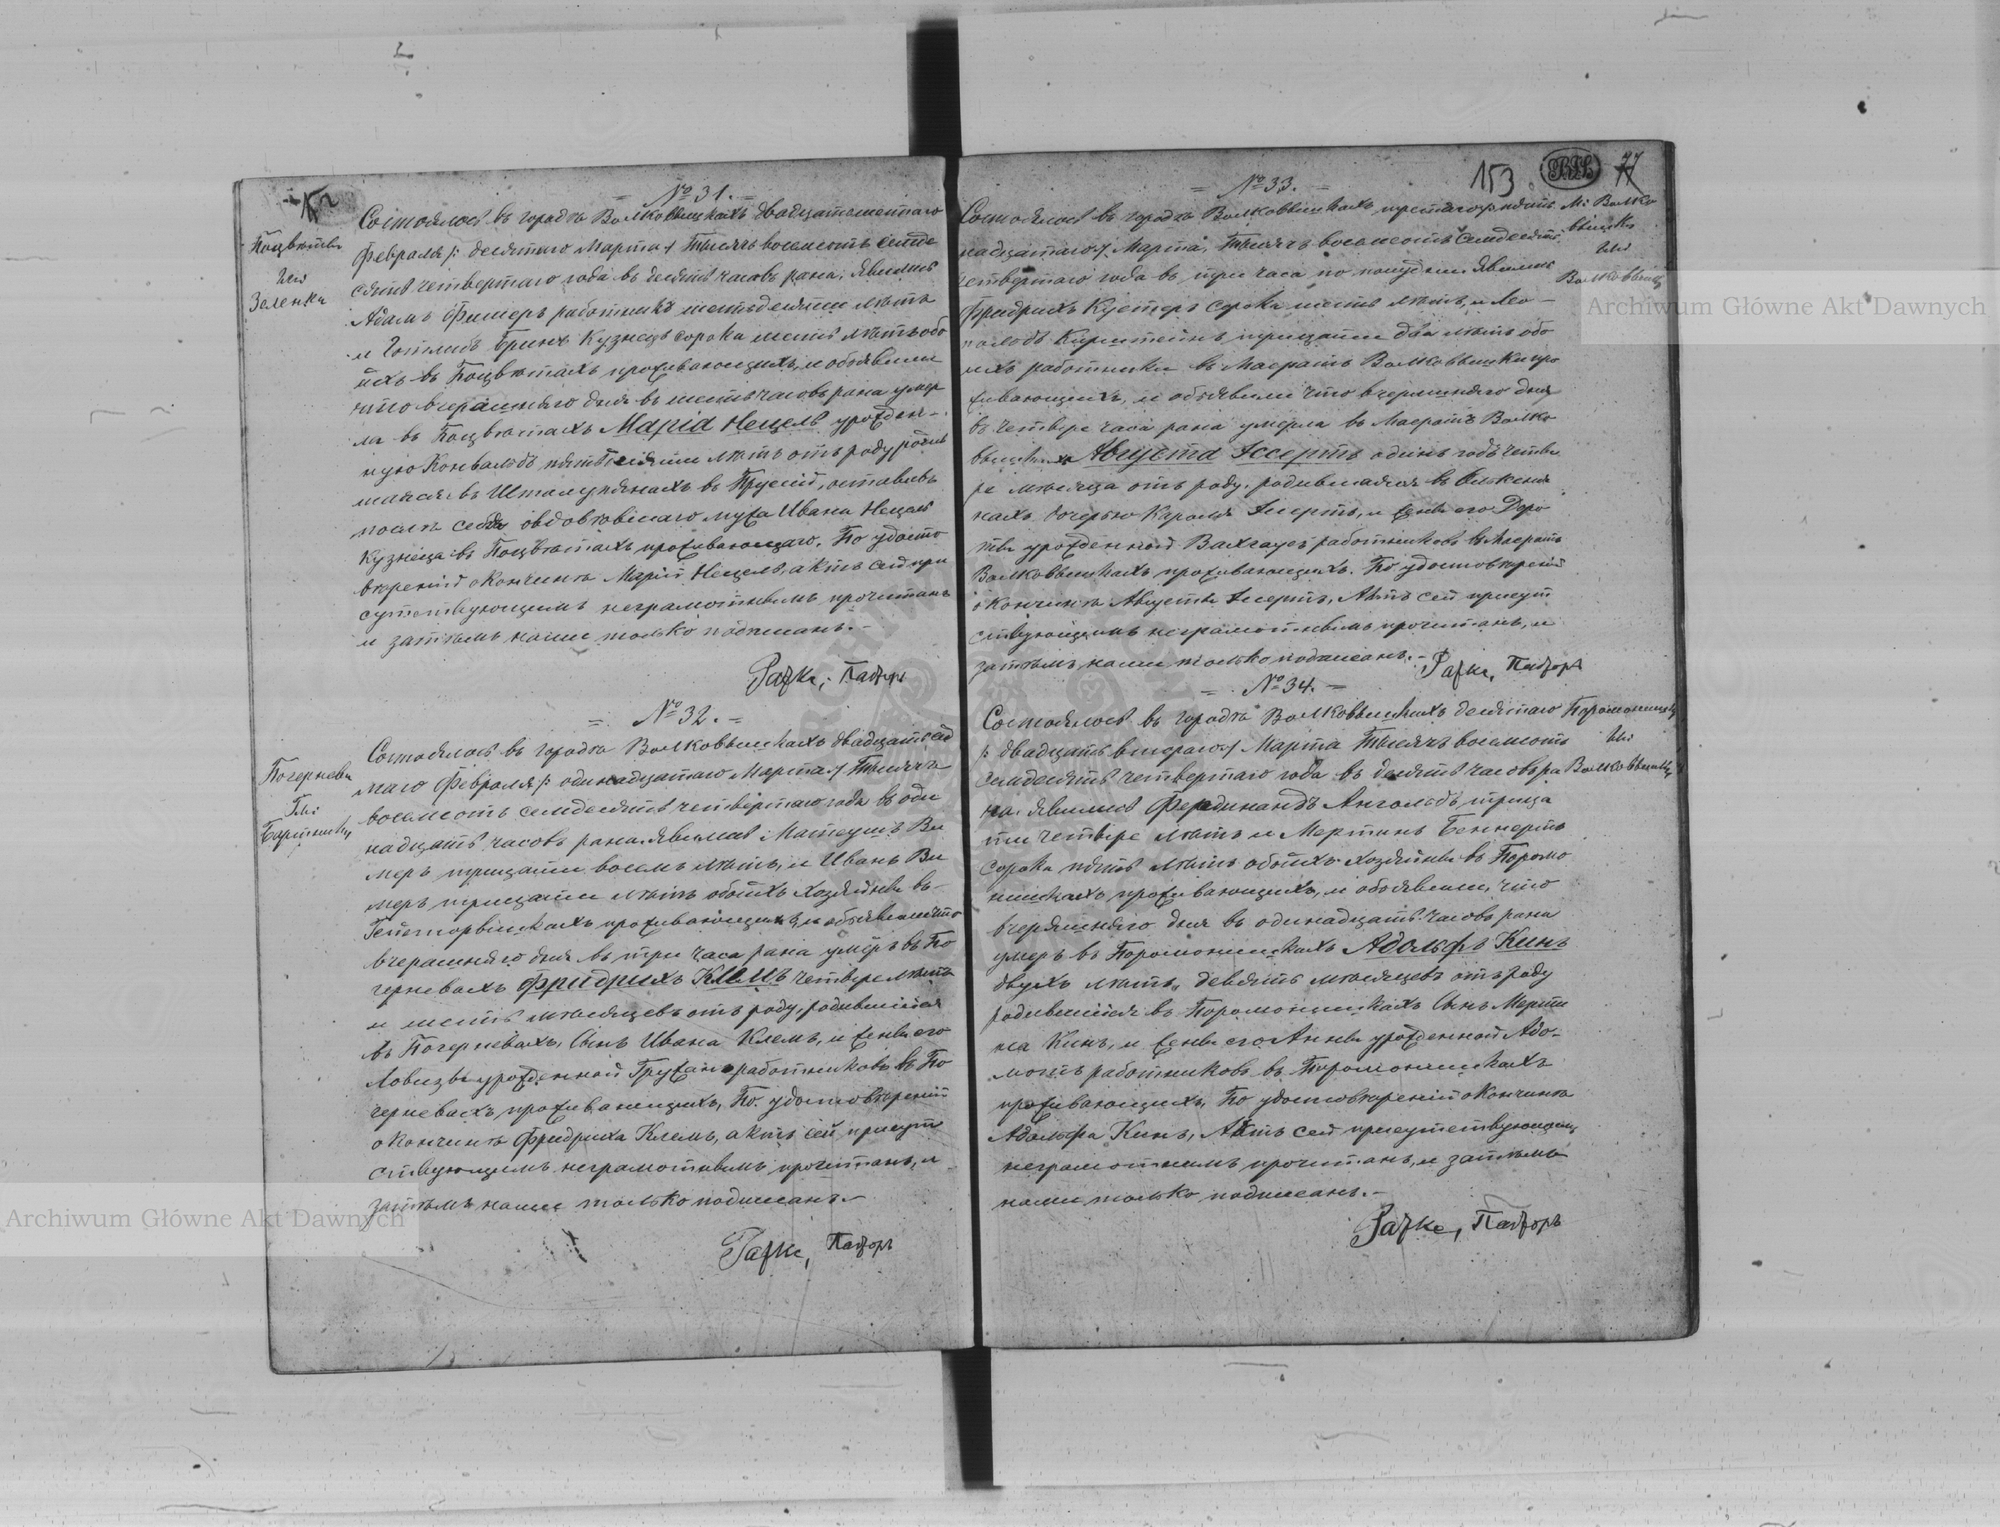 152
Поцвѣты
Гм:
Зеленка
= № 31. =
Состоялось въ городѣ Волковышкахъ двадцать шестаго
Февраля /: десятаго Марта :/ Тысяча восемьсотъ семьде
сять четвертаго года въ десять часовъ рана; явились
Адамъ Фишеръ работникъ шестьдесяти лѣтъ
и Готлибъ Бринк Кузнецъ сорока шесть лѣтъ обо
ихъ въ Поцвѣтахъ проживающихъ, и объявили
что вчерашняго дня въ шесть часовъ рана умер
ла въ Поцвѣтахъ Марія Нецель урожден-
ную Конвальдъ пятьдесяти лѣтъ отъ роду родив
шаяся въ Шталупянахъ въ Прусіи, оставивъ
послѣ себя овдовѣвшаго мужа Ивана Нецель
Кузнеца въ Поцвѣтахъ проживающаго. По удосто
вѣреніи окончинѣ Маріи Нецель, актъ сей при
сутствующимъ неграмотнымъ прочитанъ
и затѣмъ нами только подписанъ. -
Рафке, Пасторъ
= № 32. =
Почерневы
Гм:
Бартники
Состоялось въ городѣ Волковышкахъ двадцать сед
маго Февраля /: одинадцатаго Марта :/ Тысяча
восемьсотъ семдесятъ четвертаго года въ оди
надцать часовъ рана. явились Матеушъ Ви
меръ тридцати восемъ лѣтъ, и Иванъ Ви
меръ тридцати лѣтъ обоихъ хозяйны въ-
проживающихъ, и объявили что
вчерашняго дня въ три часа рана умеръ въ По
черневахъ Фридрихъ Клемъ четыре лѣта
и шесть мѣсяцевъ отъ роду, родившійся
въ Почерневахъ, Сынъ Ивана Клемъ, и жены его
Ловизы урожденной работниковъ въ По
черневахъ проживающихъ, По удостовѣреніи
окончинѣ Фридриха Клемъ, актъ сей присут
ствующимъ неграмотнымъ прочитанъ, и
затѣмъ нами только подписанъ. -
Рафке, Пасторъ
153
77
= № 33. =
М: Волко
вышки
Гм:
Волковышки
Состоялось въ городѣ Волковышкахъ третяго /: пят
надцатаго :/ Марта, Тысяча восемьсотъ Семдесятъ
четвертаго года въ три часа по полудни. явились
Фридрихъ Кустеръ сорока шесть лѣтъ, и Лео-
польдъ Кирштейнъ тридцати два лѣтъ обо
ихъ работники въ Маератъ Волковышки про
живающихъ, и объявили что вчерашняго дня
въ четыре часа рана умерла въ Маератъ Волко
вышкахъ Августа Эссертъ одинъ годъ четы
ре мѣсяца отъ роду, родившаяся въ
нахъ дочерью Кароля Эсертъ, и жены его Доро
ты урожденной работниковъ въ Маератъ
Волковышкахъ проживающихъ. По удостовѣреніи
окончинѣ Августы Эсертъ, Актъ сей присут
ствующимъ неграмотнымъ прочитанъ, и
затѣмъ нами только подписанъ. - Рафке, Пасторъ
= № 34. =
Поромонишки
Гм:
Волковышки
Состоялось въ городѣ Волковышкахъ десятаго
/: двадцать втораго :/ Марта Тысяча восемьсотъ
семдесятъ четвертаго года въ десять часовъ ра
на. явились Фердинандъ Ангольдъ трица
ти четыре лѣтъ и Мертинъ Беннертъ
сорока пять лѣтъ обоихъ хозяйны въ Поромо
нишкахъ проживающихъ, и объявили, что
вчерашняго дня въ одинадцать часовъ рана
умеръ въ Поромонишкахъ Адольфъ Кинъ
двухъ лѣтъ, девять мѣсяцевъ отъ роду
родившійся въ Поромонишкахъ Сынъ Мерти
на Кинъ, и жены его Анны урожденной Адо-
мотъ работниковъ въ Поромонишкахъ
проживающихъ, По удостовѣреніи окончинѣ
Адольфа Кинъ, Актъ сей присутствующимъ
неграмотнымъ прочитанъ, и затѣмъ
нами только подписанъ. -
Рафке, Пасторъ
Archiwum Główne Akt Dawnych
Archiwum Główne Akt Dawnych